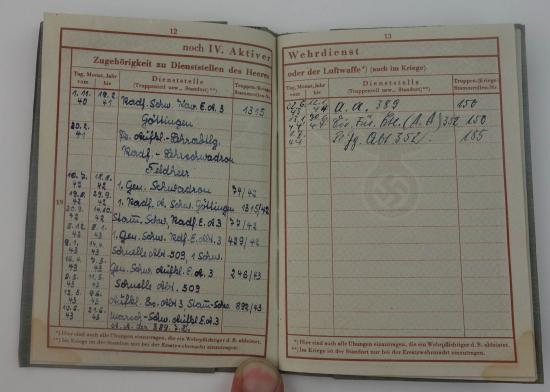 12
noch IV. Aktiver
Zugehörigkeit zu Dienststellen des Heeres
Tag, Monat, Jahr
vom bis
Dienststelle
(Truppenteil usw., Standort) **)
Truppen-(Kriegs-)
Stammrollen-Nr.
1.11. 40 19.2. 41 Radf. Schw. Kav. E.A. 3 1315
Göttingen
20.2. 41 Aufkl.-Lehrabtlg.
Radf.-Lehrschwadron
42 42 1. Gen. Schwadron 74/42
42 42 1. Radf. A. Schw. Göttingen 1315/42
42 42 Stam. Schw. Radf. E.A. 3 77/42
42 43 1. Gen. Schw. Radf. E. Abt. 3 429/42
9.1. 43 14.4. 43 Schnelle Abt. 309, 1 Schw.
43 43 Gen. Schw. Aufkl. E.A. 3 246/43
43 43 Schnelle Abt. 309
43 43 Aufkl. Ers. Abt 3, Stam-Schw. 892/43
43 43 Marsch-Schw. Aufkl. E.A. 3
A.A. der 389. I.D.
*) Hier sind auch alle Übungen einzutragen, die ein Wehrpflichtiger d. B. ableistet.
**) Im Kriege ist der Standort nur bei der Ersatzwehrmacht einzutragen.
13
Wehrdienst
oder der Luftwaffe *) (auch im Kriege)
Tag, Monat, Jahr
vom bis
Dienststelle
(Truppenteil usw., Standort) **)
Truppen-(Kriegs-)
Stammrollen-Nr.
A.A. 389 150
Div. Füs. Btl. (A.A.) 352 150
Abt. 352. 185
*) Hier sind auch alle Übungen einzutragen, die ein Wehrpflichtiger d. B. ableistet.
**) Im Kriege ist der Standort nur bei der Ersatzwehrmacht einzutragen.